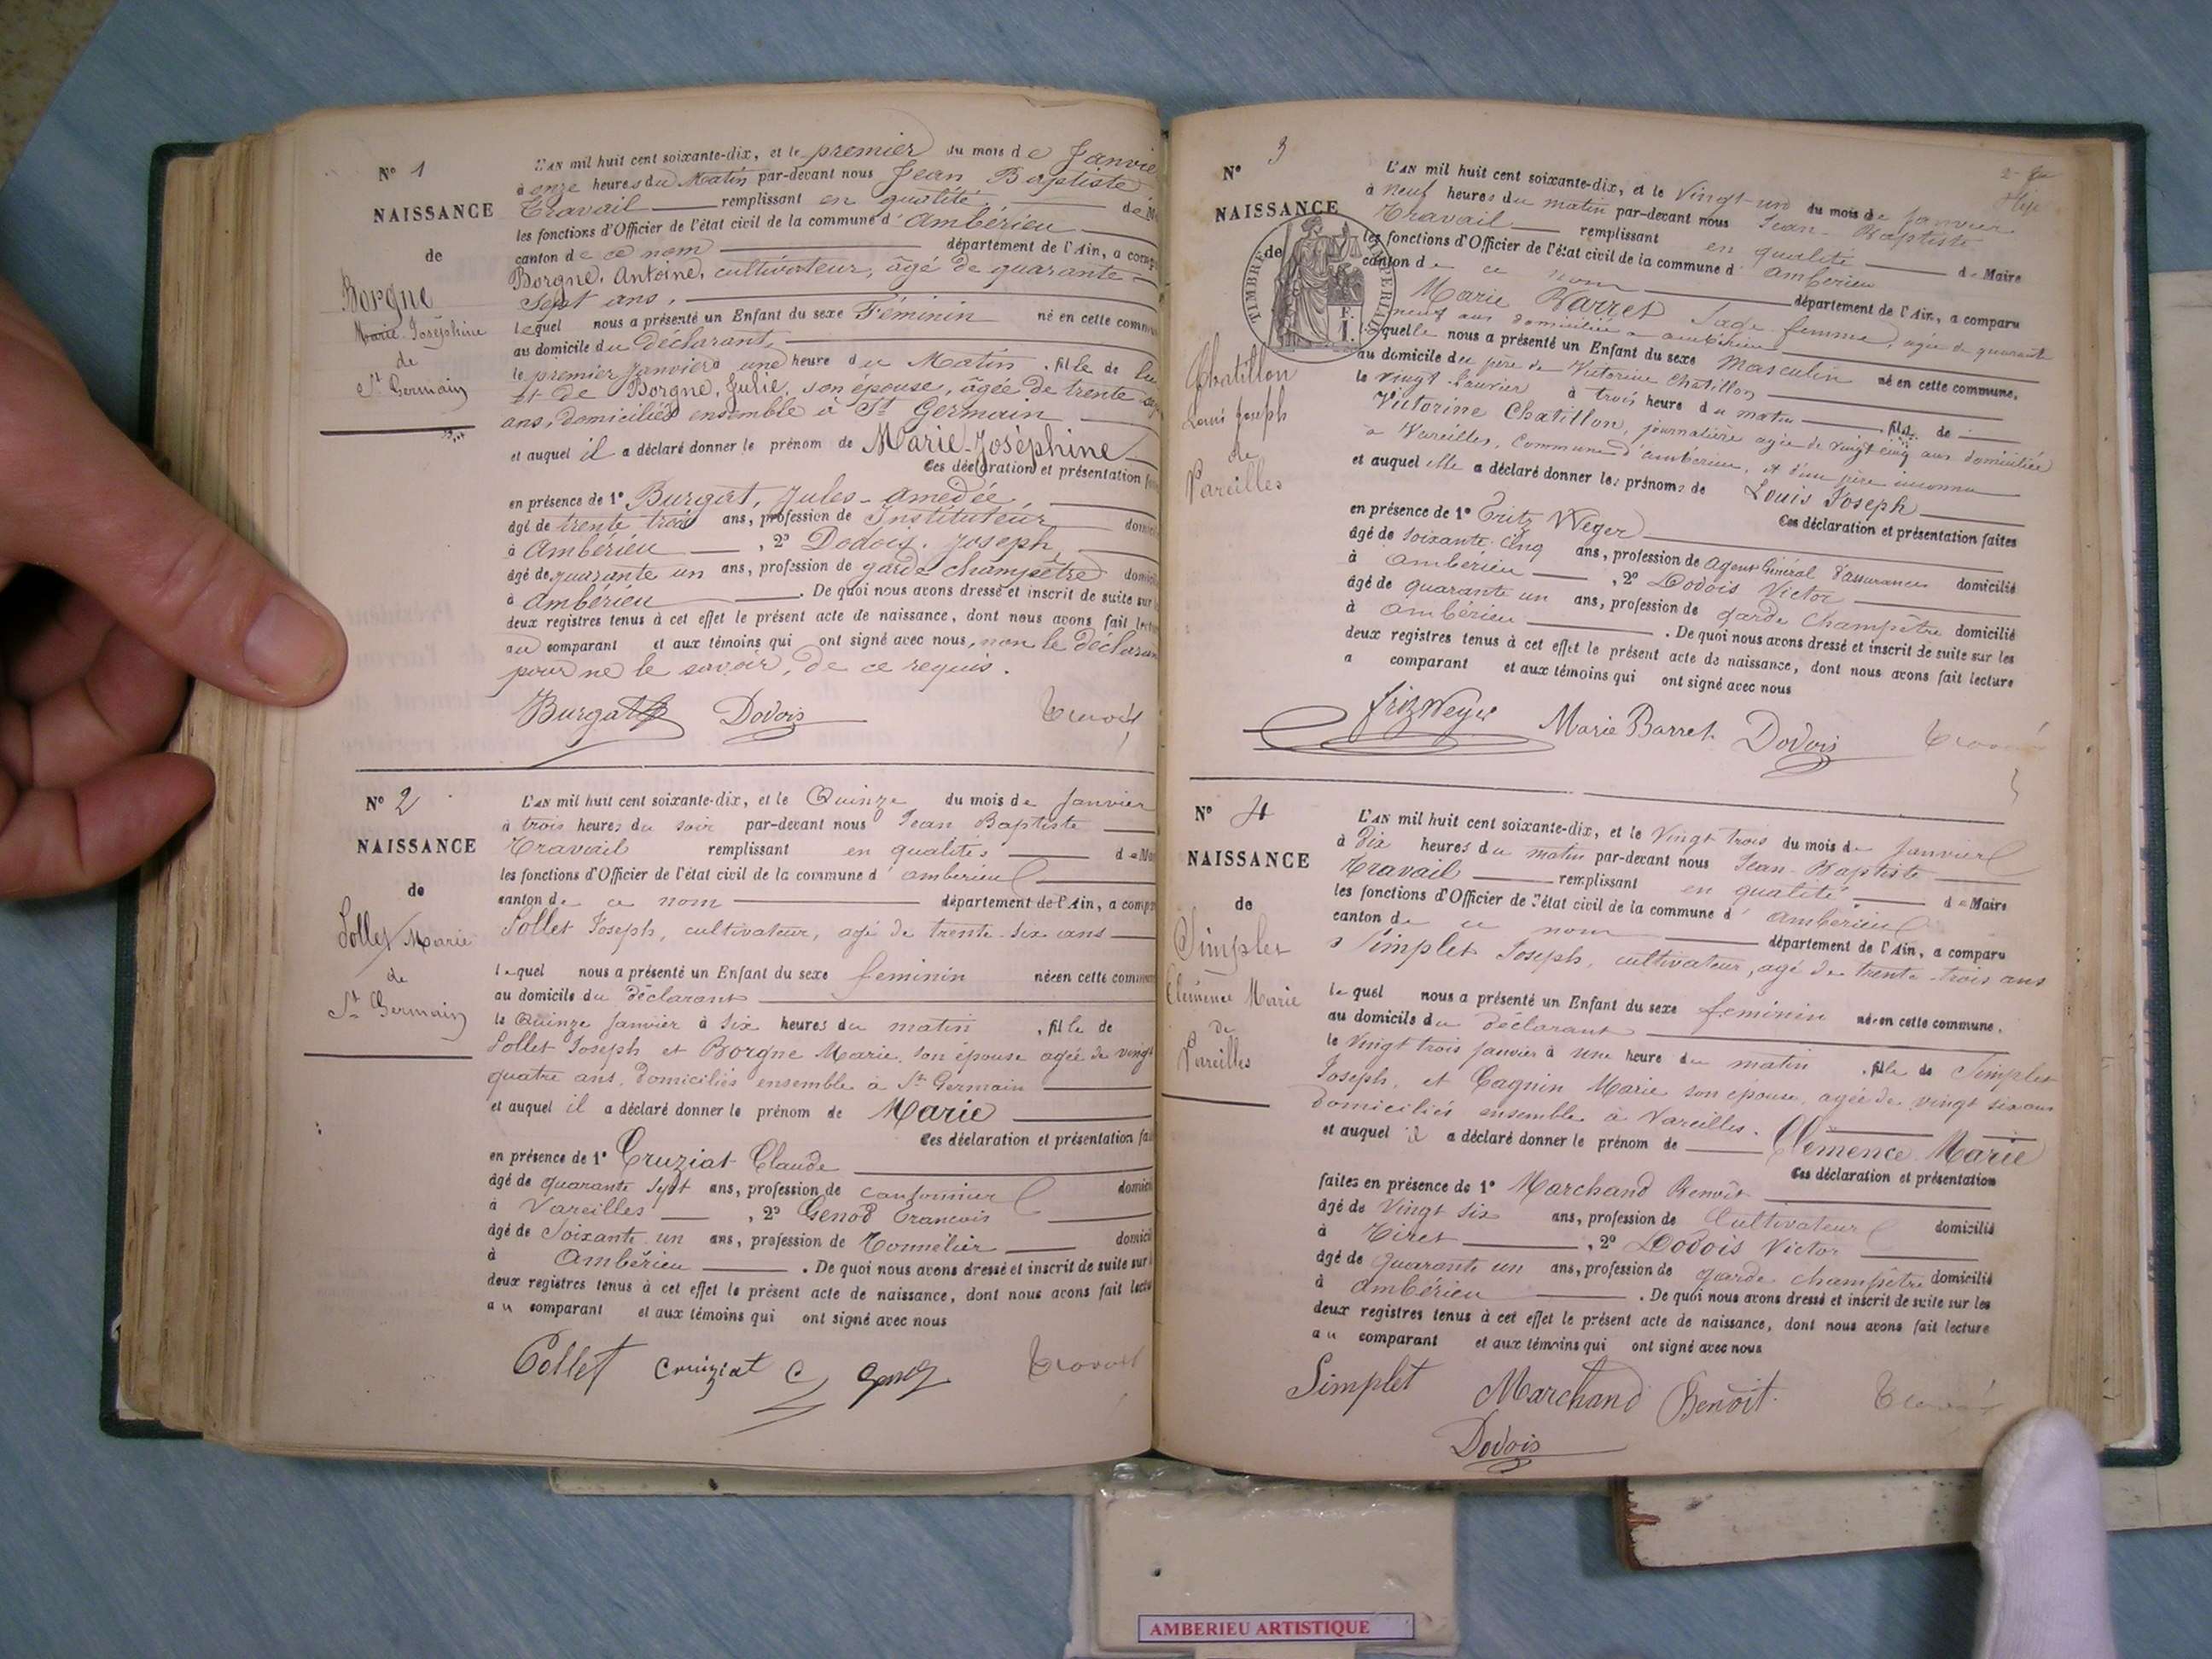 N° 1
NAISSANCE
de
Borgne
Marie Joséphine
de
St Germain
L'AN mil huit cent soixante-dix, et le premier du mois de Janvie
à onze heures du Matin par-devant nous Jean Baptiste
Travail remplissant en qualité de M
les fonctions d'Officier de l'état civil de la commune d'Ambérieu
canton de ce nom département de l'Ain, a comp
Borgne, Antoine, cultivateur, âgé de quarante
sept ans,
lequel nous a présenté un Enfant du sexe Féminin né en cette comm
au domicile du Déclarant,
le premier Janvier à une heure du Matin, fille de lu
et de Borgne, Julie, son épouse, âgée de trente
ans, domiciliés ensemble à St Germain
et auquel il a déclaré donner le prénom de Marie-Joséphine
Ces déclaration et présentation
en présence de 1° Burgat, Jules-amédée
âgé de trente trois ans, profession de Instituteur domici
à Ambérieu, 2° Dodois, Joseph,
âgé de quarante un ans, profession de garde champêtre domici
à Ambérieu. De quoi nous avons dressé et inscrit de suite sur
deux registres tenus à cet effet le présent acte de naissance, dont nous avons fait lectu
au comparant et aux témoins qui ont signé avec nous, non le déclaran
pour ne le savoir, de ce requis.
Burgat Dodois Travail
N° 2
NAISSANCE
de
Collet Marie
de
St Germain
L'AN mil huit cent soixante-dix, et le Quinze du mois de Janvier
à trois heures du soir par-devant nous Jean Baptiste
Travail remplissant en qualités de Ma
les fonctions d'Officier de l'état civil de la commune d'ambérieu
canton de ce nom département de l'Ain, a comp
Collet Joseph, cultivateur, agé de trente-six ans
lequel nous a présenté un Enfant du sexe feminin née en cette commun
au domicile du déclarant
le Quinze Janvier à six heures du matin, fille de
Collet Joseph et Borgne Marie, son épouse agée de vingt
quatre ans, domiciliés ensemble à St Germain
et auquel il a déclaré donner le prénom de Marie
Ces déclaration et présentation fai
en présence de 1° Cruziat Claude
âgé de quarante sept ans, profession de cantonnier domici
à Vareilles, 2° Genod francois
âgé de Soixante un ans, profession de Tonnelier domici
à Ambérieu. De quoi nous avons dressé et inscrit de suite sur l
deux registres tenus à cet effet le présent acte de naissance, dont nous avons fait lectu
au comparant et aux témoins qui ont signé avec nous
Collet Cruiziat C Travail
N° 3
NAISSANCE
de
TIMBRE IMPERIAL
F. 1.
Chatillon
Louis Joseph
de
Vareilles
L'AN mil huit cent soixante-dix, et le Vingt-un du mois de Janvier
à neuf heures du matin par-devant nous Jean-Baptiste
Travail remplissant en qualité de Maire
les fonctions d'Officier de l'état civil de la commune d'ambérieu
canton de ce nom département de l'Ain, a comparu
Marie Barret Sage-femme, agée de quarante
neuf ans domiciliée a ambérieu
laquelle nous a présenté un Enfant du sexe Masculin né en cette commune,
au domicile du père de Victorine Chatillon
le vingt Janvier à trois heure du matin, fils de
Victorine Chatillon, journalière agée de vingt cinq ans domiciliée
à Vareilles, Commune d'ambérieu, et d'un père inconnu
et auquel elle a déclaré donner les prénoms de Louis Joseph
Ces déclaration et présentation faites
en présence de 1° Fritz Weger
âgé de soixante-cinq ans, profession de Agent Général d'assurances domicilié
à ambérieu, 2° Dodois Victor
âgé de quarante un ans, profession de garde champêtre domicilié
à ambérieu. De quoi nous avons dressé et inscrit de suite sur les
deux registres tenus à cet effet le présent acte de naissance, dont nous avons fait lecture
a comparant et aux témoins qui ont signé avec nous
fritz Weger Marie Barret Dodois Travail
N° 4
NAISSANCE
de
Simplet
Clémence Marie
de
Vareilles
L'AN mil huit cent soixante-dix, et le Vingt trois du mois de Janvier
à dix heures du matin par-devant nous Jean-Baptiste
Travail remplissant en qualité de Maire
les fonctions d'Officier de l'état civil de la commune d'ambérieu
canton de ce nom département de l'Ain, a comparu
Simplet Joseph, cultivateur, agé de trente-trois ans
lequel nous a présenté un Enfant du sexe feminin née en cette commune,
au domicile du déclarant
le Vingt trois Janvier à une heure du matin, fille de Simplet
Joseph, et Gagnin Marie son épouse, agée de vingt six ans
domiciliés ensemble à Vareilles.
et auquel il a déclaré donner le prénom de Clémence Marie
Ces déclaration et présentation
faites en présence de 1° Marchand Benoit
âgé de Vingt six ans, profession de Cultivateur domicilié
à Tiret, 2° Dodois Victor
âgé de quarante un ans, profession de garde champêtre domicilié
à ambérieu. De quoi nous avons dressé et inscrit de suite sur les
deux registres tenus à cet effet le présent acte de naissance, dont nous avons fait lecture
au comparant et aux témoins qui ont signé avec nous
Simplet Marchand Benoit Travail
Dodois
AMBERIEU ARTISTIQUE